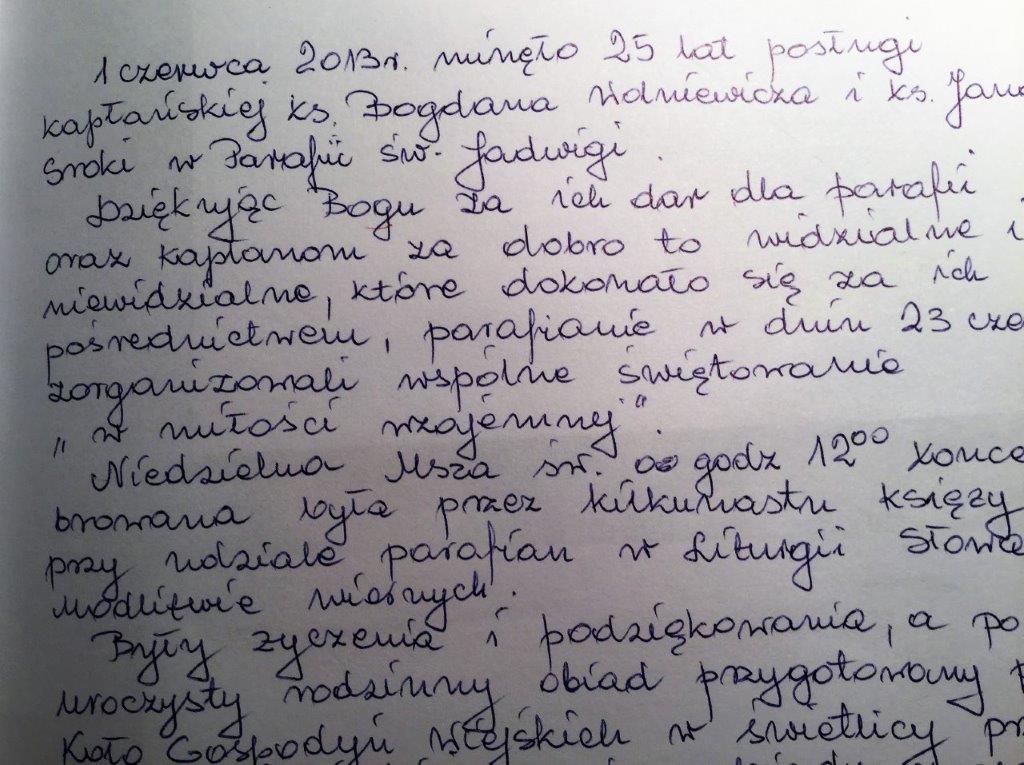 1 czerwca 2013r. minęło 25 lat posługi
kapłańskiej ks. Bogdana i ks.
Sroki w Parafii św. Jadwigi.
Dziękując Bogu za ich dar dla parafii
oraz kapłanom za dobro to widzialne i
niewidzialne, które dokonało się za ich
pośrednictwem, parafianie w dniu 23 cze
zorganizowali wspólne świętowanie
„w miłości wzajemnej".
Niedzielna Msza św. o godz 12⁰⁰ konce
browana była przez kilkunastu księży
przy udziale parafian w Liturgii Słowa
modlitwie wiernych.
Były życzenia i podziękowania, a po
uroczysty rodzinny obiad przygotowany
Koło Gospodyń Wiejskich w świetlicy prz